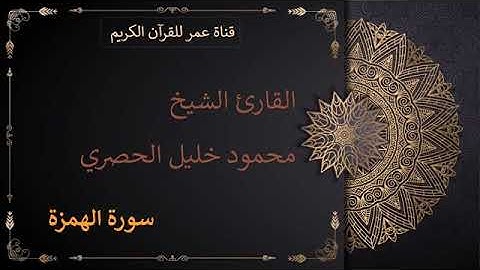 قناة عمر للقرآن الكريم
القارئ الشيخ
محمود خليل الحصري
سورة الهمزة